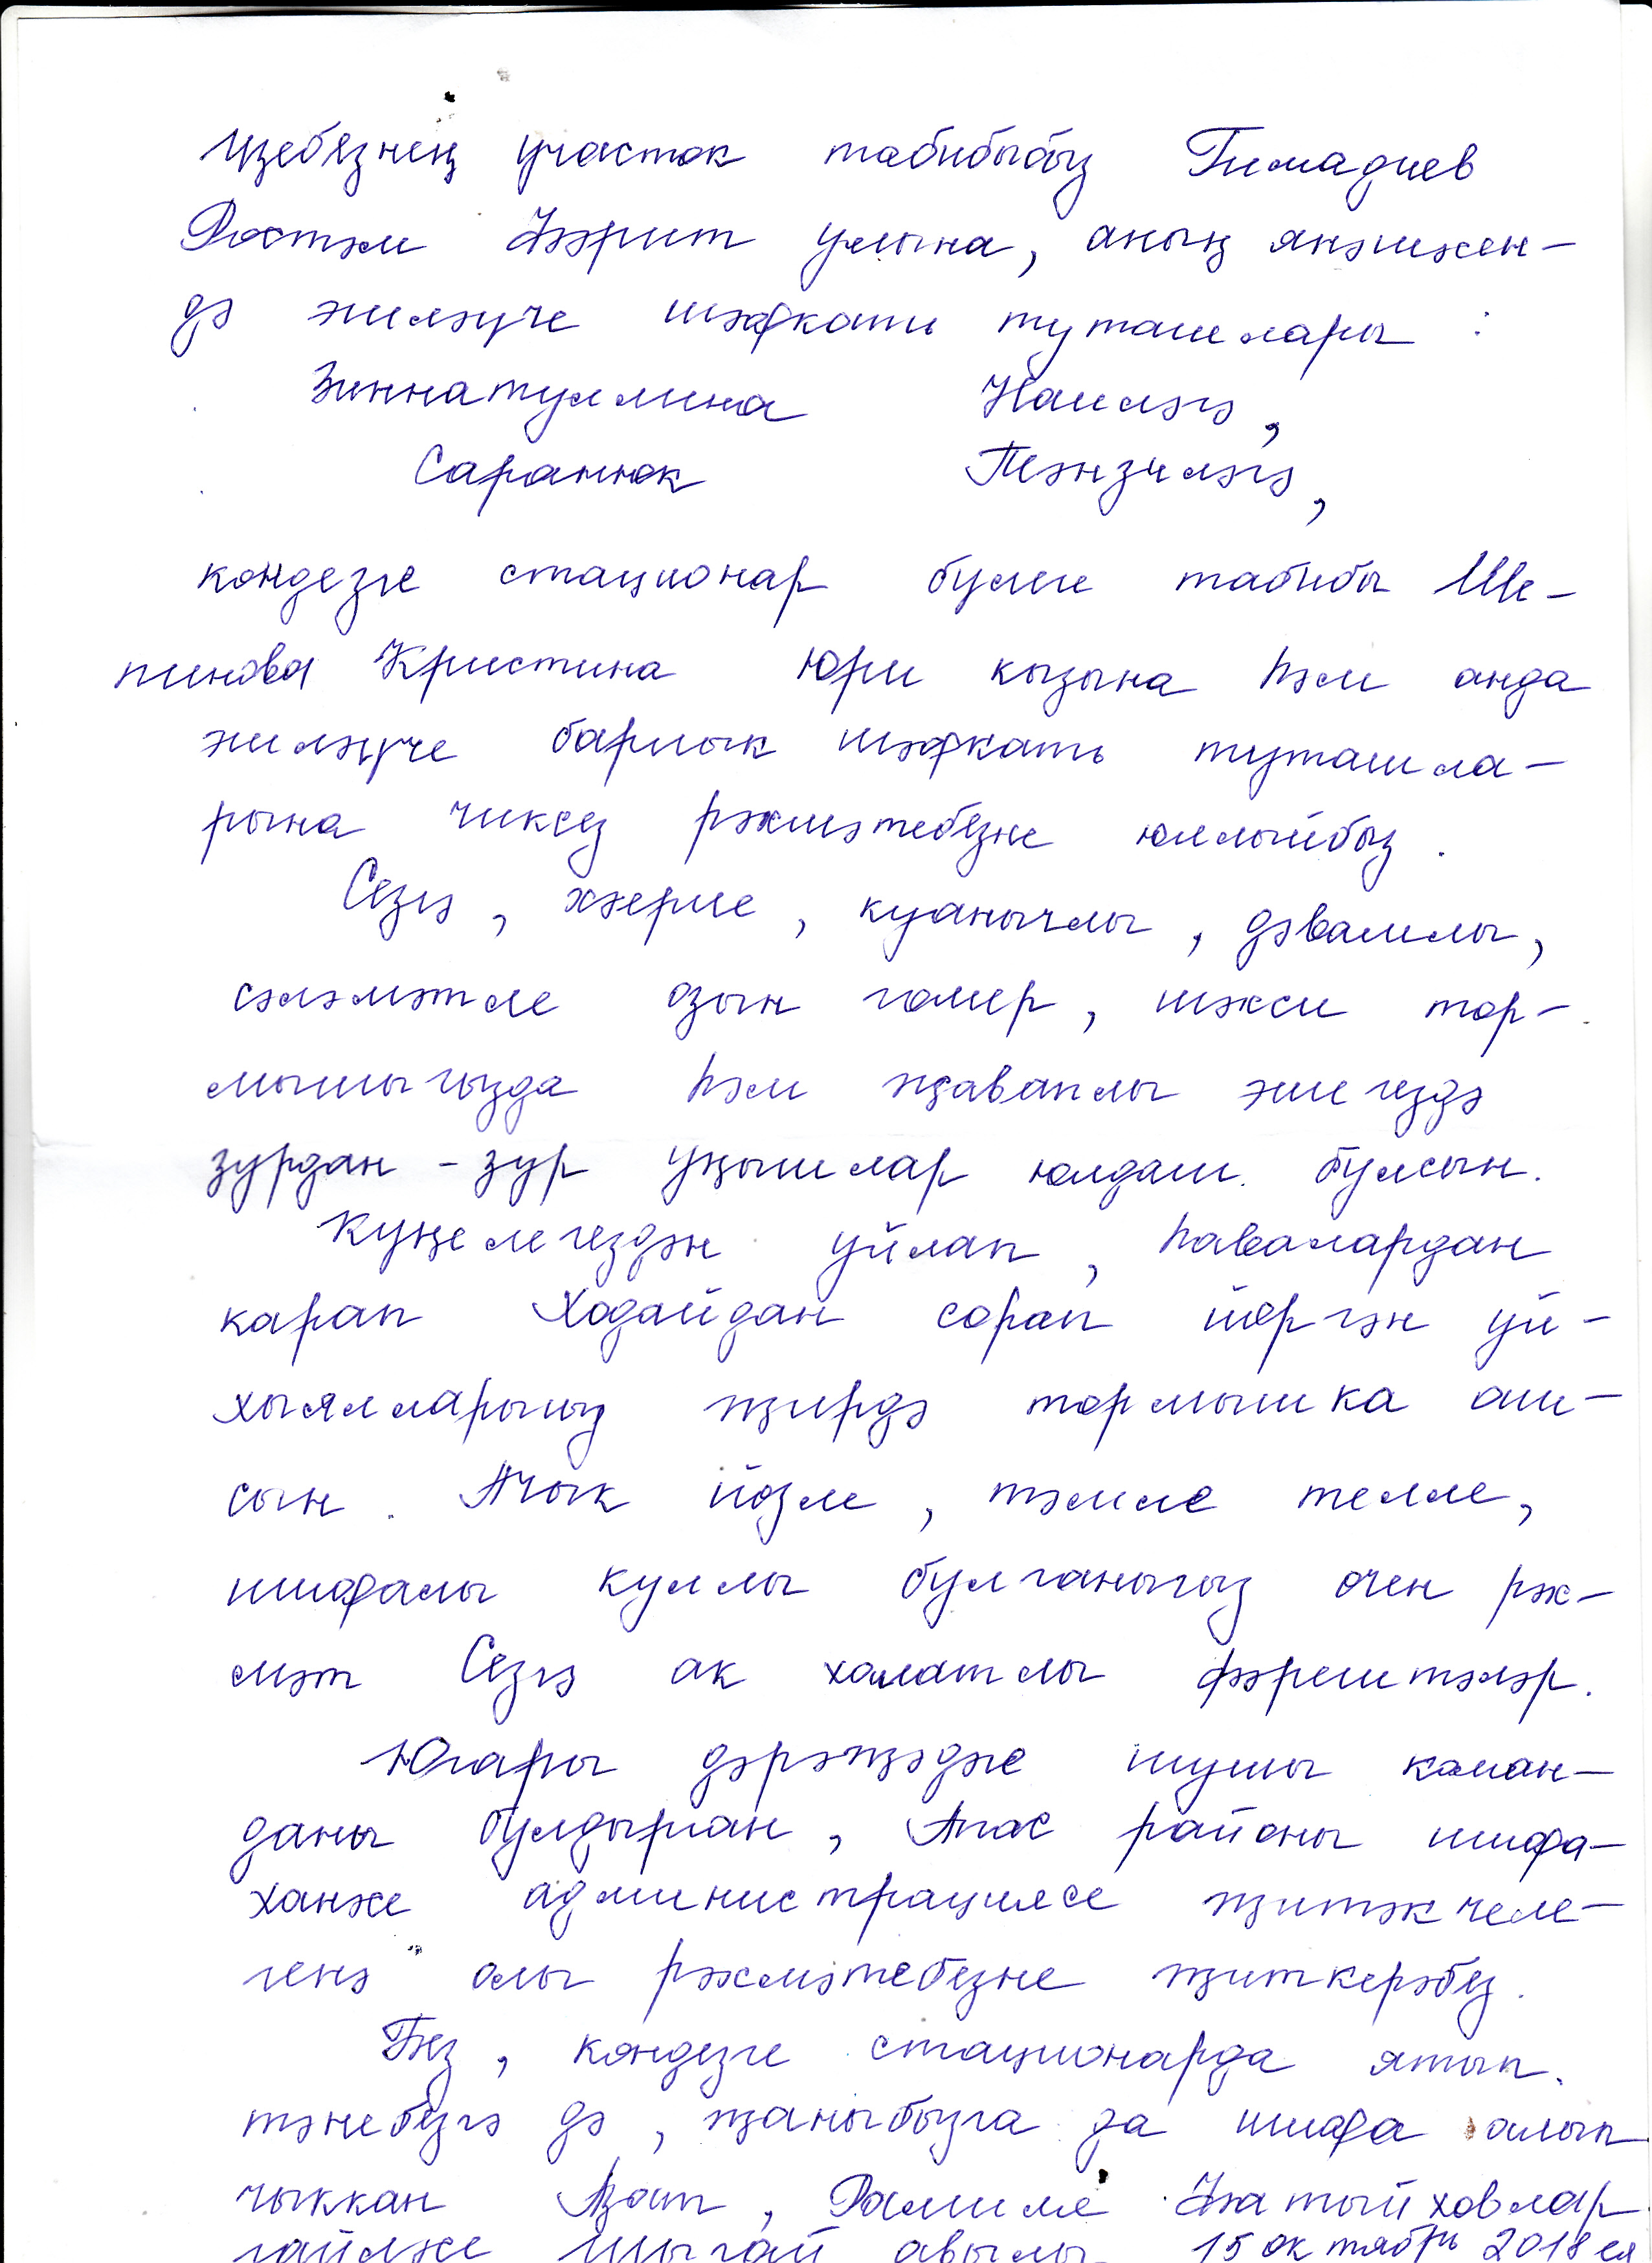 Үзебезнең участок табибыбыз Гимадиев
Рөстәм Фәрит улына, аның янәшәсен-
дә эшләүче шәфкать туташлары :
Зиннатуллина Наиләгә,
Саранчок Тәнзиләгә,
көндезге стационар бүлеге табибы Ше-
пинова Кристина Юрий кызына һәм анда
эшләүче барлык шәфкать туташла-
рына чиксез рәхмәтебезне юллыйбыз.
Сезгә, хәерле, куанычлы, дәвамлы,
сәламәтле озын гомер, шәхси тор-
мышыгызда һәм җаваплы эшегездә
зурдан-зур уңышлар юлдаш булсын.
Күңелегездән уйлап, һавалардан
карап Ходайдан сорап йөргән уй-
хыялларыгыз җирдә тормышка аш-
сын. Ачык йөзле, тәмле телле,
шифалы куллы булганыгыз өчен рәх-
мәт Сезгә ак халатлы фәрештәләр.
Югары дәрәҗәдәге шушы коман-
даны булдырган, Апас районы шифа-
ханәсе администрациясе җитәкчеле-
генә олы рәхмәтебезне җиткерәбез.
Без, көндезге стационарда ятып
тәнебезгә дә, җаныбызга да шифа алып
чыккан Азат, Рәмилә
гаиләсе авылы 15 октябрь 2018 ел